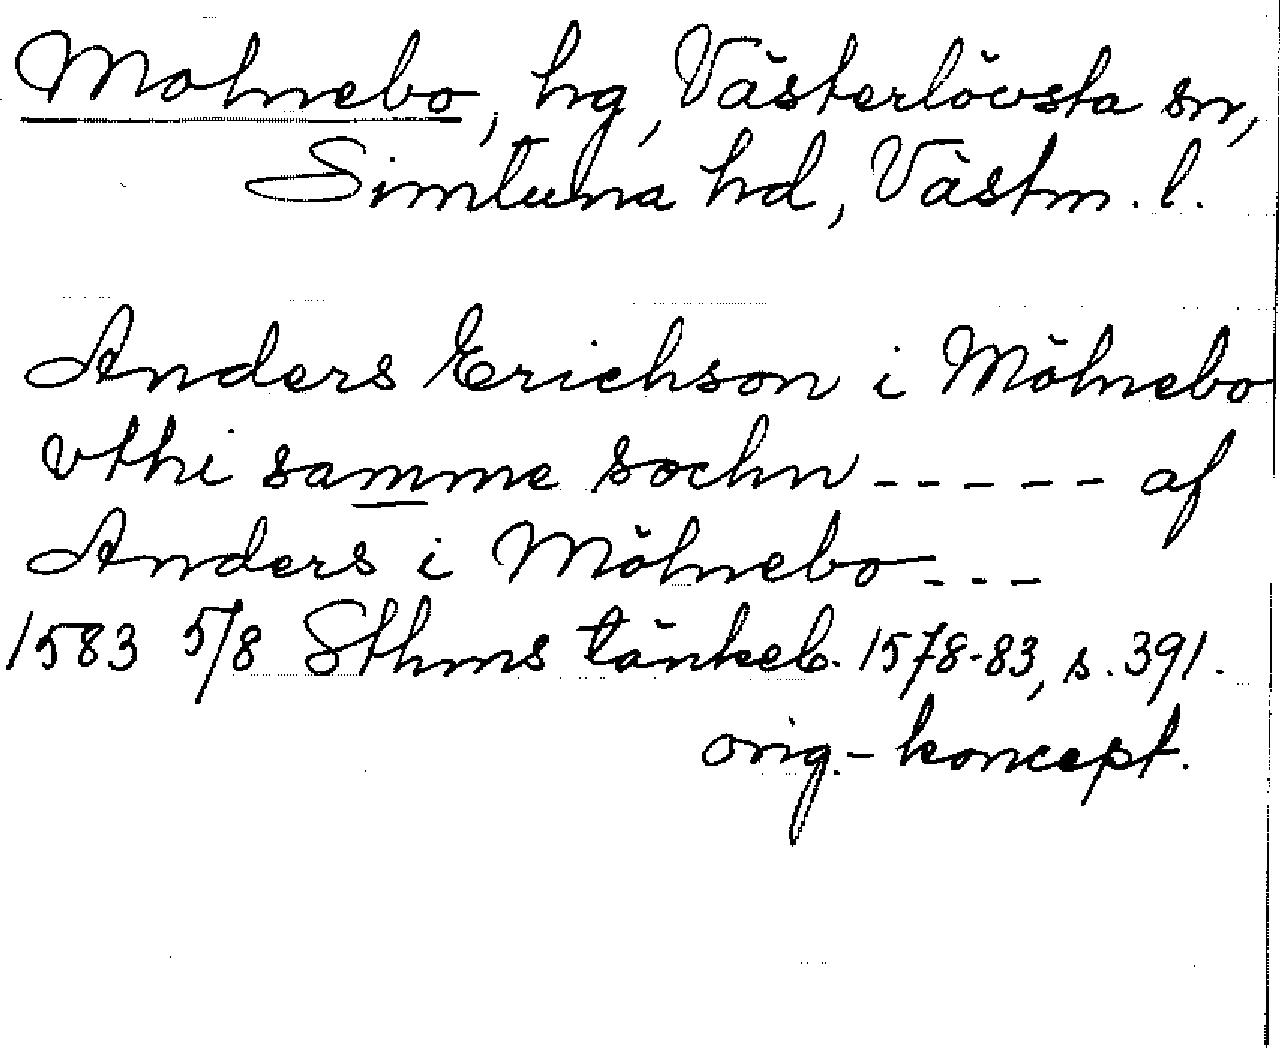 Molnebo, hg, Västerlövsta sn,
Simtuna hd, Västm. l.
Anders Erichson i Mölnebo
vthi samme sochn ----- af
Anders i Mölnebo ---
1583 5/8 Sthms tänkeb. 1578-83, s. 391.
orig.- koncept.